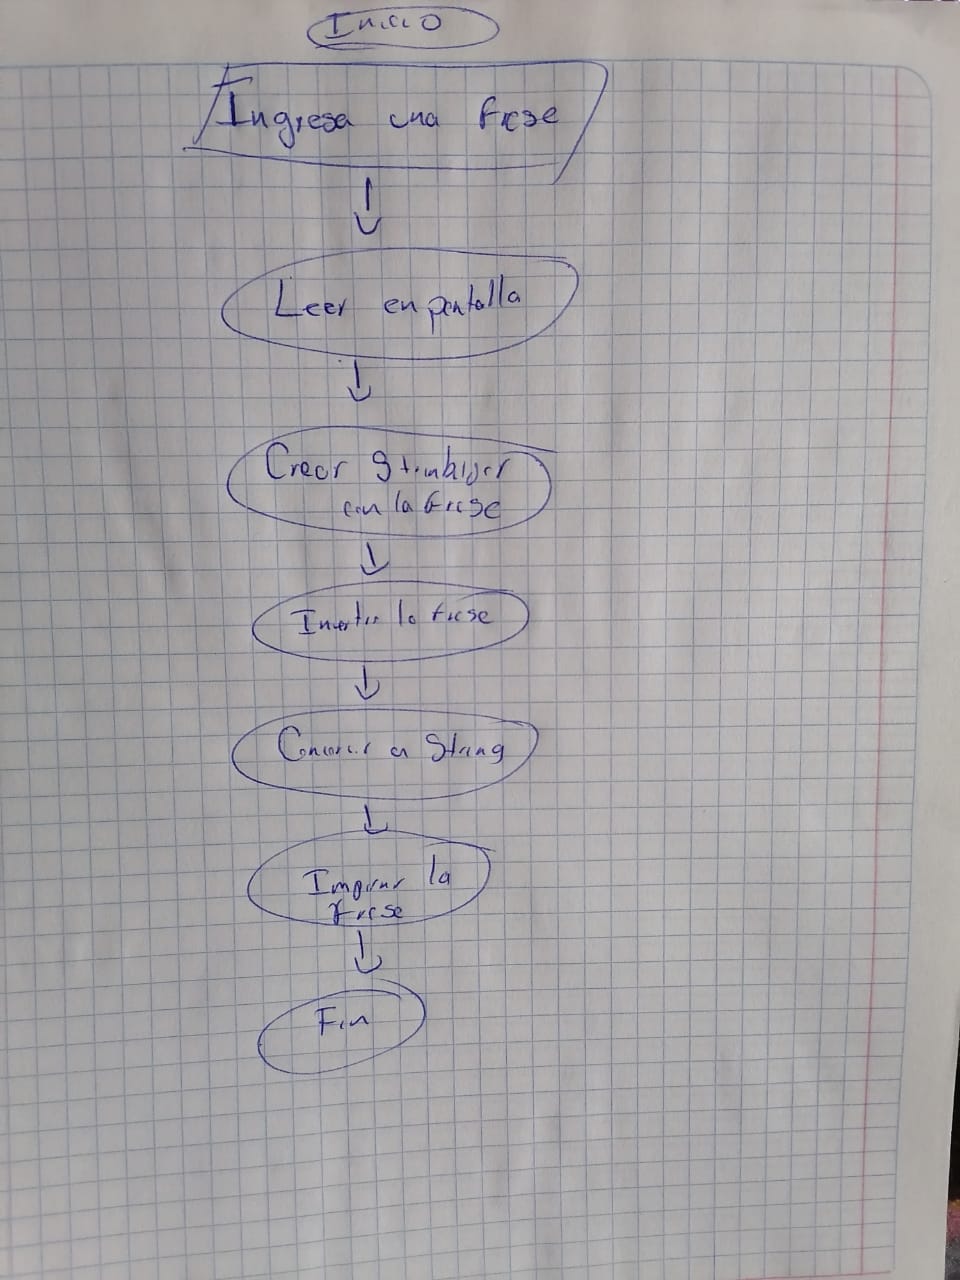 Inicio
Ingresa una frase
Leer en pantalla
Crear
con la frase
Invertir la frase
a String
Imprimir la
frase
Fin